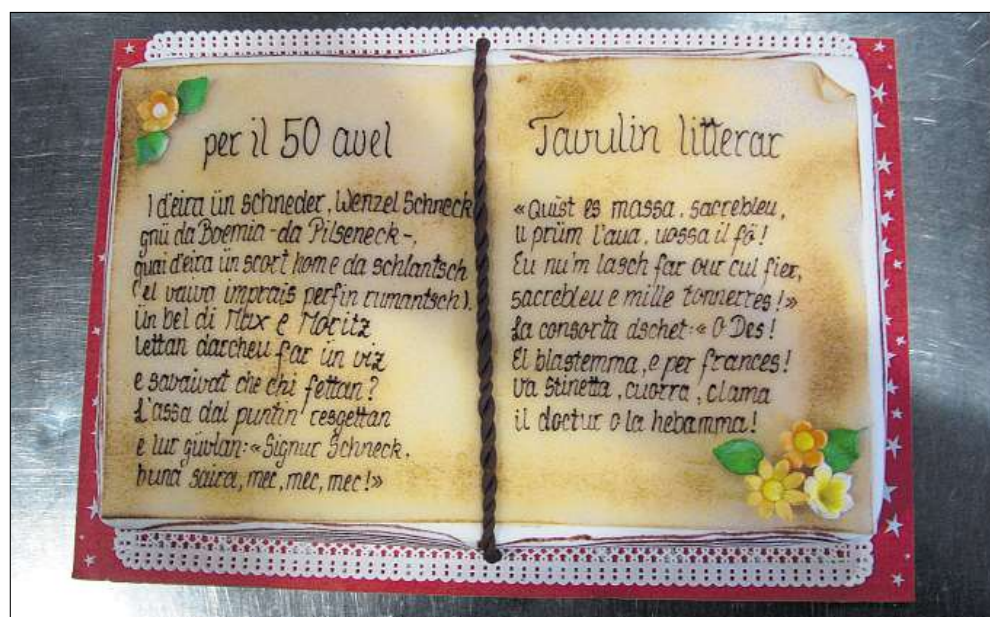 per il 50 avel
I d'eira ün schneder, Wenzel Schneck
gnü da Boemia - da Pilseneck -,
quai d'eira ün scort home da schlantsch
(el vaiva imprais perfin rumantsch).
Ün bel di Max e Moritz
lettan darcheu far ün viz
e savaivat che chi fettan?
L'assa dal puntin resgettan
e lur güvlan: «Signur Schneck,
buna saira, mec, mec, mec!»
Tavulin litterar
«Quist es massa, sacrebleu,
il prüm l'aua, uossa il fö!
Eu nu'm lasch far our cul fier,
sacrebleu e mille tonnerres!»
La consorta dschet: «O Des!
El blastemma, e per frances!
Va Stinetta, cuorra, clama
il doctur o la hebamma!